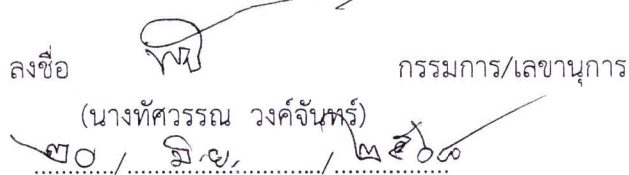 ลงชื่อ กรรมการ/เลขานุการ
(นางทัศวรรณ วงค์จันทร์)
๒๐ / มิ.ย. /